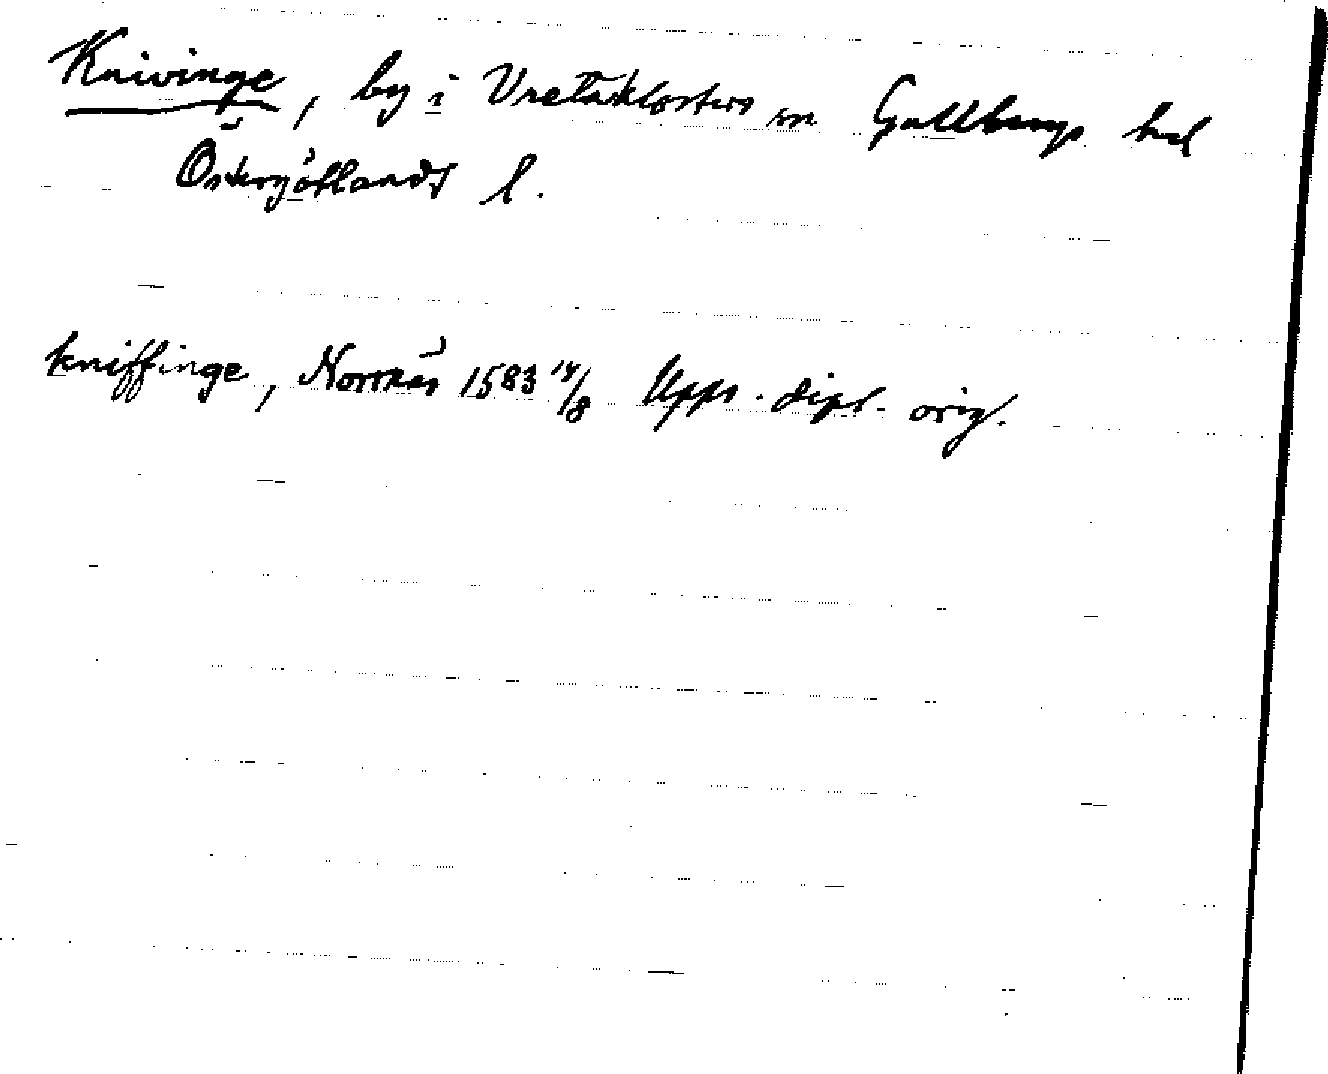 Knivinge, by i Vretaklosters sn Gullbergs hd
Östergötlands l.
kniffinge, Norrnäs 1583 14/8 Upps. dipl. orig.